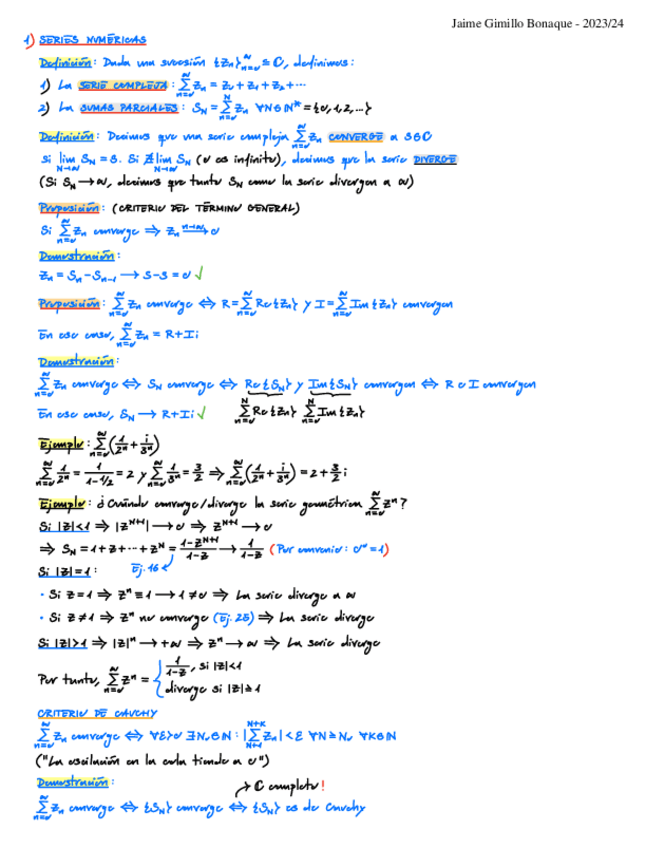 Jaime Gimillo Bonaque - 2023/24
1) SERIES NUMÉRICAS
Definición: Dada una sucesión {zₙ}ₙ₌₀^∞ ⊆ ℂ, definimos:
1) La SERIE COMPLEJA: ∑ₙ₌₀^∞ zₙ = z₀ + z₁ + z₂ + ···
2) La SUMAS PARCIALES: S_N = ∑ₙ₌₀^N zₙ ∀N∈ℕ* = {0,1,2,...}
Definición: Decimos que una serie compleja ∑ₙ₌₀^∞ zₙ CONVERGE a S∈ℂ
si lim_{N→∞} S_N = S. Si ∄ lim_{N→∞} S_N (o es infinito), decimos que la serie DIVERGE
(Si S_N → ∞, decimos que tanto S_N como la serie divergen a ∞)
Proposición: (CRITERIO DEL TÉRMINO GENERAL)
Si ∑ₙ₌₀^∞ zₙ converge ⇒ zₙ →^{n→∞} 0
Demostración:
zₙ = Sₙ - Sₙ₋₁ → S - S = 0 ✓
Proposición: ∑ₙ₌₀^∞ zₙ converge ⇔ R = ∑ₙ₌₀^∞ Re{zₙ} y I = ∑ₙ₌₀^∞ Im{zₙ} convergen
En ese caso, ∑ₙ₌₀^∞ zₙ = R + Ii
Demostración:
∑ₙ₌₀^∞ zₙ converge ⇔ S_N converge ⇔ Re{S_N} y Im{S_N} convergen ⇔ R e I convergen
En ese caso, S_N → R + Ii ✓ ∑ₙ₌₀^N Re{zₙ} ∑ₙ₌₀^N Im{zₙ}
Ejemplo: ∑ₙ₌₀^∞ (1/2ⁿ + i/3ⁿ)
∑ₙ₌₀^∞ 1/2ⁿ = 1/(1-1/2) = 2 y ∑ₙ₌₀^∞ 1/3ⁿ = 3/2 ⇒ ∑ₙ₌₀^∞ (1/2ⁿ + i/3ⁿ) = 2 + 3/2 i
Ejemplo: ¿Cuándo converge/diverge la serie geométrica ∑ₙ₌₀^∞ zⁿ?
Si |z|<1 ⇒ |z^{N+1}| → 0 ⇒ z^{N+1} → 0
⇒ S_N = 1 + z + ··· + z^N = (1-z^{N+1})/(1-z) → 1/(1-z) (Por convenio: 0⁰=1)
Si |z|=1: Ej. 16
· Si z=1 ⇒ zⁿ ≡ 1 → 1 ≠ 0 ⇒ La serie diverge a ∞
· Si z≠1 ⇒ zⁿ no converge (Ej. 25) ⇒ La serie diverge
Si |z|>1 ⇒ |z|ⁿ → +∞ ⇒ zⁿ → ∞ ⇒ La serie diverge
Por tanto, ∑ₙ₌₀^∞ zⁿ = { 1/(1-z), si |z|<1
diverge si |z|≥1
CRITERIO DE CAUCHY
∑ₙ₌₀^∞ zₙ converge ⇔ ∀ε>0 ∃N₀∈ℕ : |∑_{N+1}^{N+K} zₙ| < ε ∀N≥N₀ ∀K∈ℕ
("La oscilación en la cola tiende a 0")
Demostración: ↗ ℂ completo!
∑ₙ₌₀^∞ zₙ converge ⇔ {S_N} converge ⇔ {S_N} es de Cauchy